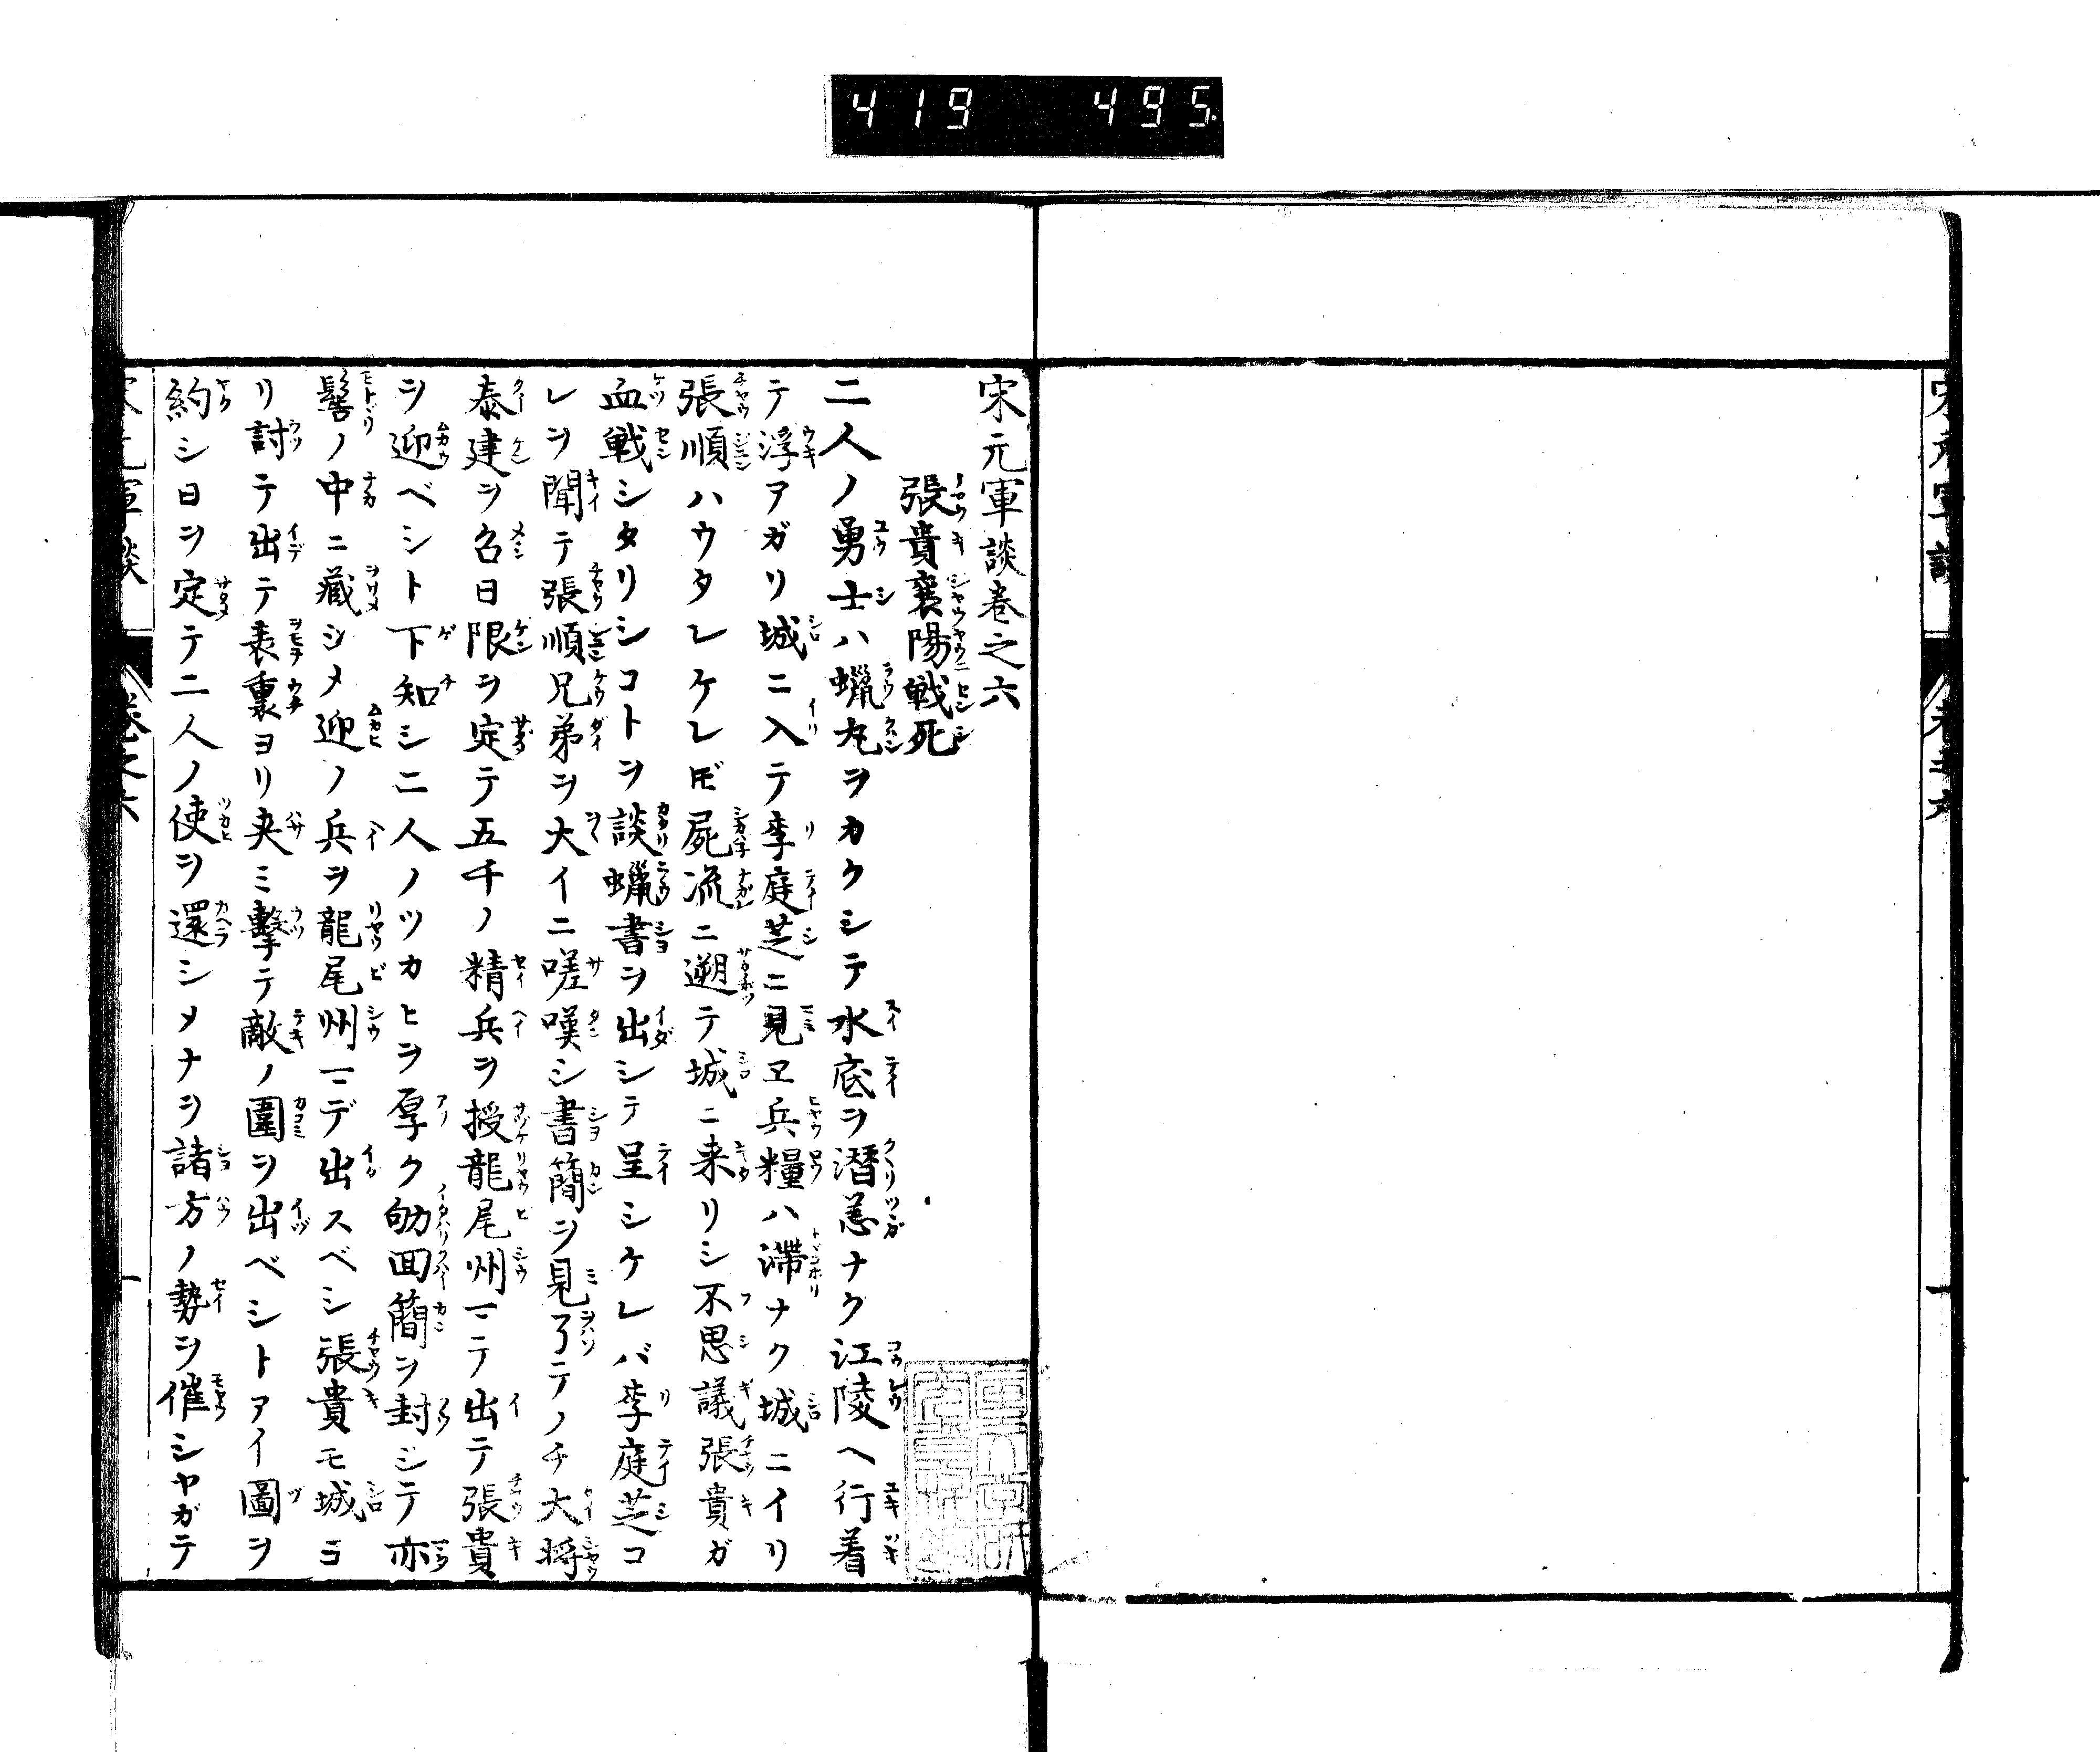 419 495
宋元軍談巻之六
張貴襄陽戦死
二人ノ勇士ハ蠟丸ヲカクシテ水底ヲ潜恙ナク江陵ヘ行着
テ浮アガリ城ニ入テ李庭芝ニ見ヱ兵糧ハ滞ナク城ニイリ
張順ハウタレケレ𪜈屍流ニ遡テ城ニ来リシ不思議張貴ガ
血戦シタリシコトヲ談蠟書ヲ出シテ呈シケレバ李庭芝コ
レヲ聞テ張順兄弟ヲ大イニ嗟嘆シ書簡ヲ見了テノチ大将
泰建ヲ召日限ヲ定テ五千ノ精兵ヲ授龍尾州マテ出テ張貴
ヲ迎ベシト下知シ二人ノツカヒヲ厚ク劬回簡ヲ封シテ亦
髻ノ中ニ蔵シメ迎ノ兵ヲ龍尾州マデ出スベシ張貴モ城ヨ
リ討テ出テ表裏ヨリ夾ミ撃テ敵ノ圍ヲ出ベシトアイ圖ヲ
約シ日ヲ定テ二人ノ使ヲ還シメナヲ諸方ノ勢ヲ催シヤガテ